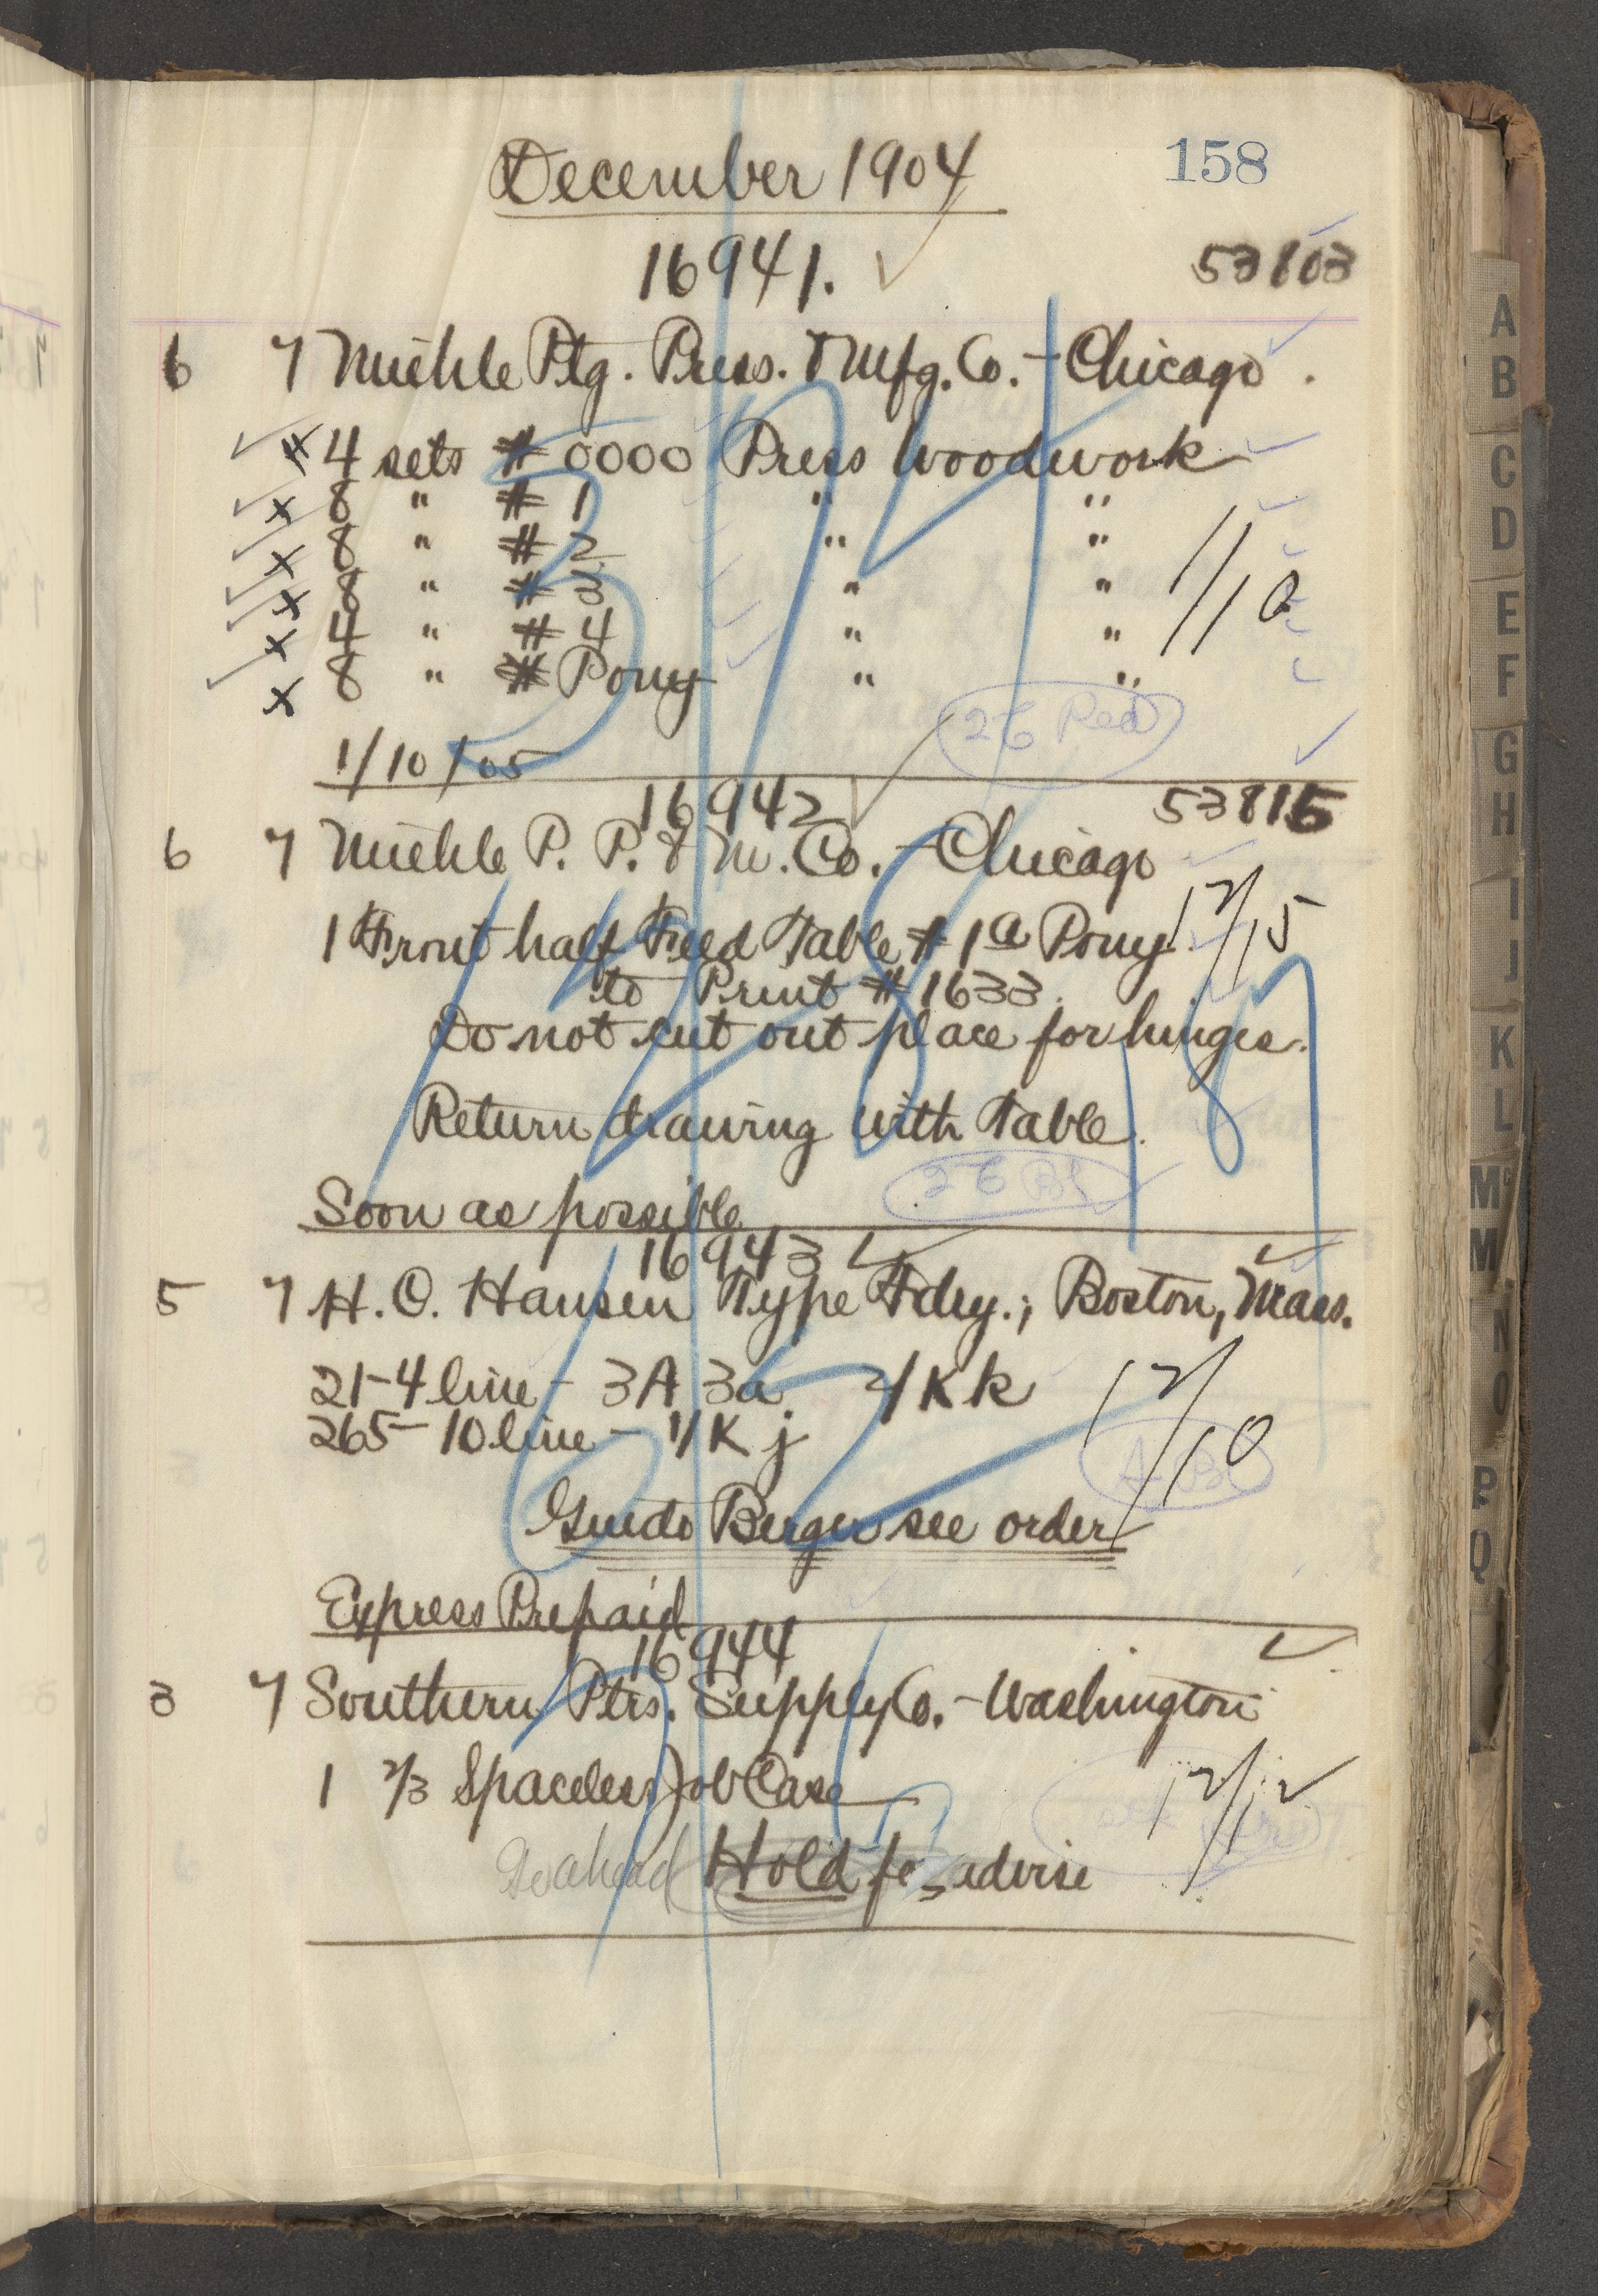 December 1904
158
16941. ✓
53803
6 7 Miehle Ptg. Press. & Mfg. Co. - Chicago.
4 sets # 0000 Press Woodwork
x 8 " # 1 " "
x 8 " # 2 " "
x 8 " # 3 " "
x 4 " # 4 " "
x 8 " # Pony " "
1/10
2 E Red
1/10/05
16942
53815
6 7 Miehle P. P. & M. Co. - Chicago
1 Front half Feed Table # 1a Pony
12/15
to Print # 1633.
Do not cut out place for hinges.
Return drawing with Table.
2 E Bl
Soon as possible
16943
5 7 H. C. Hansen Type Fdry.; Boston, Mass.
21-4 line - 3A 3a 2/K k
265-10 line - 1/K j
12/10
Guido Berger see order
Express Prepaid
16944
3 7 Southern Ptrs. Supply Co. - Washington
1 2/3 Spaceless Job Case
12/12
Go ahead Hold for advise
A
B
C
D
E
F
G
H
I
J
K
L
Mc
M
N
O
P
Q